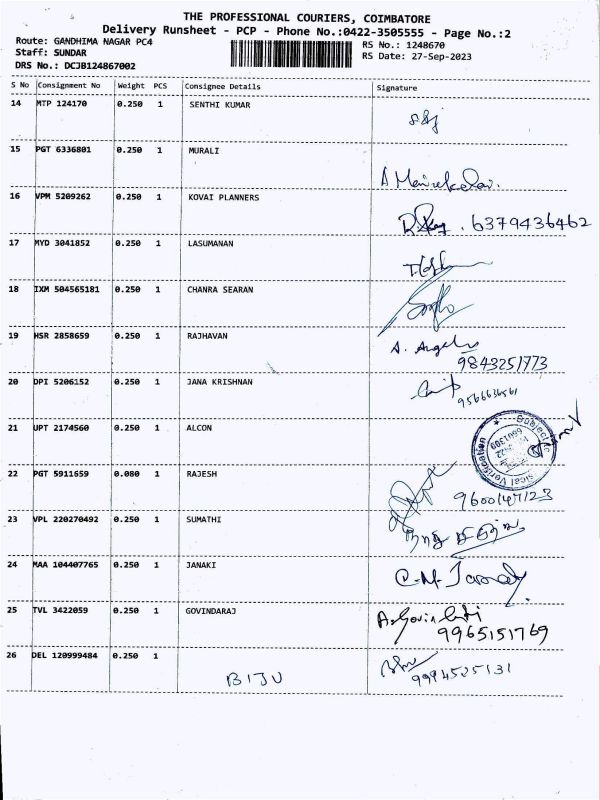 THE PROFESSIONAL COURIERS, COIMBATORE
Delivery Runsheet - PCP - Phone No.:0422-3505555 - Page No.:2
Route: GANDHIMA NAGAR PC4
RS No.: 1248670
Staff: SUNDAR
RS Date: 27-Sep-2023
DRS No.: DCJB124867002
S No Consignment No Weight PCS Consignee Details Signature
14 MTP 124170 0.250 1 SENTHI KUMAR
15 PGT 6336801 0.250 1 MURALI
16 VPM 5209262 0.250 1 KOVAI PLANNERS 6379436462
17 MYD 3041852 0.250 1 LASUMANAN
18 IXM 504565181 0.250 1 CHANRA SEARAN
19 HSR 2858659 0.250 1 RAJHAVAN
9843251773
20 DPI 5206152 0.250 1 JANA KRISHNAN
21 UPT 2174560 0.250 1 ALCON
22 PGT 5911659 0.080 1 RAJESH
23 VPL 220270492 0.250 1 SUMATHI
24 MAA 104407765 0.250 1 JANAKI
25 TVL 3422059 0.250 1 GOVINDARAJ
9965151769
26 DEL 120999484 0.250 1
BIJU
9994525131